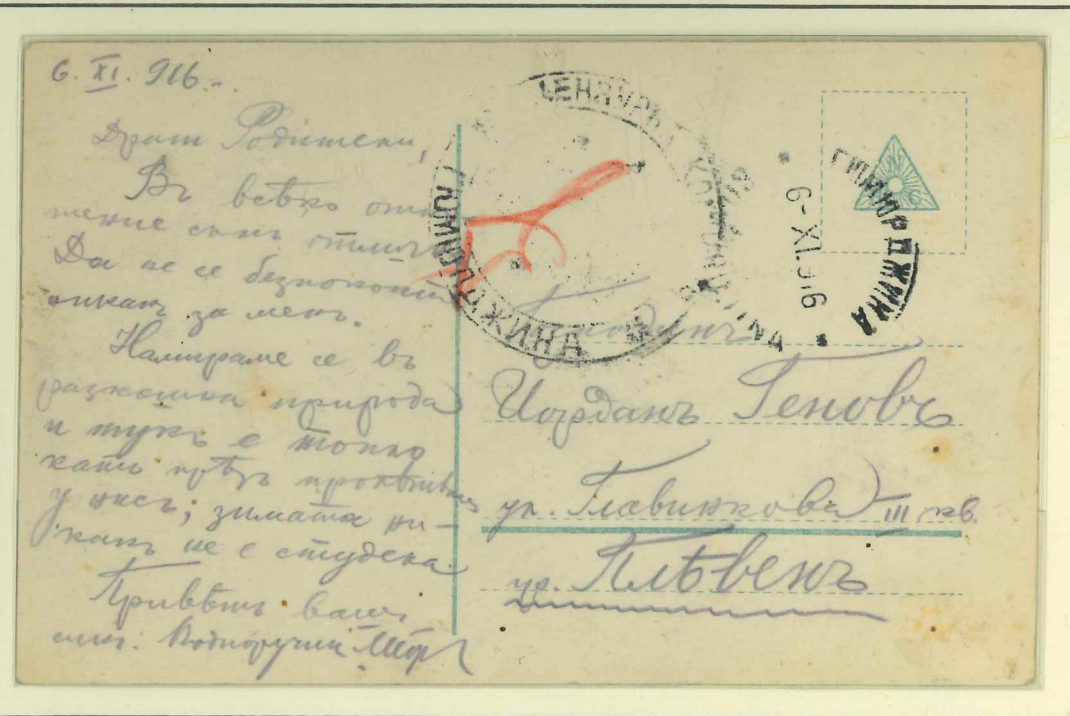 6. XI. 916.
Драги Родители,
Въ всѣко отно-
шение съмъ отлично
Да не се безпокоите
никакъ за мене.
Намираме се въ
разкошна природа
и тукъ е топло
като прѣзъ пролѣтьта
у насъ; зимата ни-
какъ не е студена.
Привѣтъ вашъ
синъ: Подпоручикъ
ГЮМЮРДЖИНА
6-XI.916
ГЮМЮРДЖИНА
Господинъ
Иорданъ Геновъ
ул. III кв.
гр. Плѣвенъ